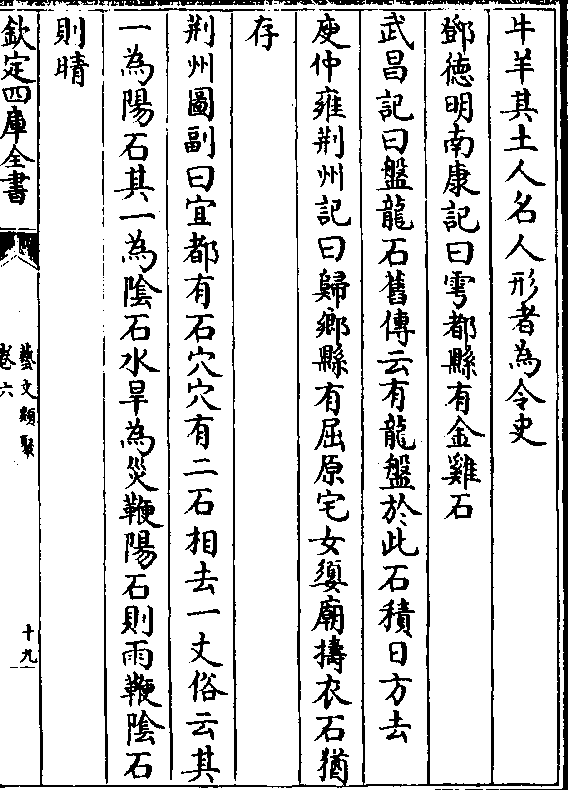 牛羊其土人名人形者為令史
鄧德明南康記曰雩都縣有金雞石
武昌記曰盤龍石舊傳云有龍盤於此石積日方去
庾仲雍荆州記曰歸鄉縣有屈原宅女嬃廟擣衣石猶
存
荆州圖副曰宜都有石穴穴有二石相去一丈俗云其
一為陽石其一為陰石水旱為災鞭陽石則雨鞭陰石
則晴
欽定四庫全書
藝文類聚
卷六
十九